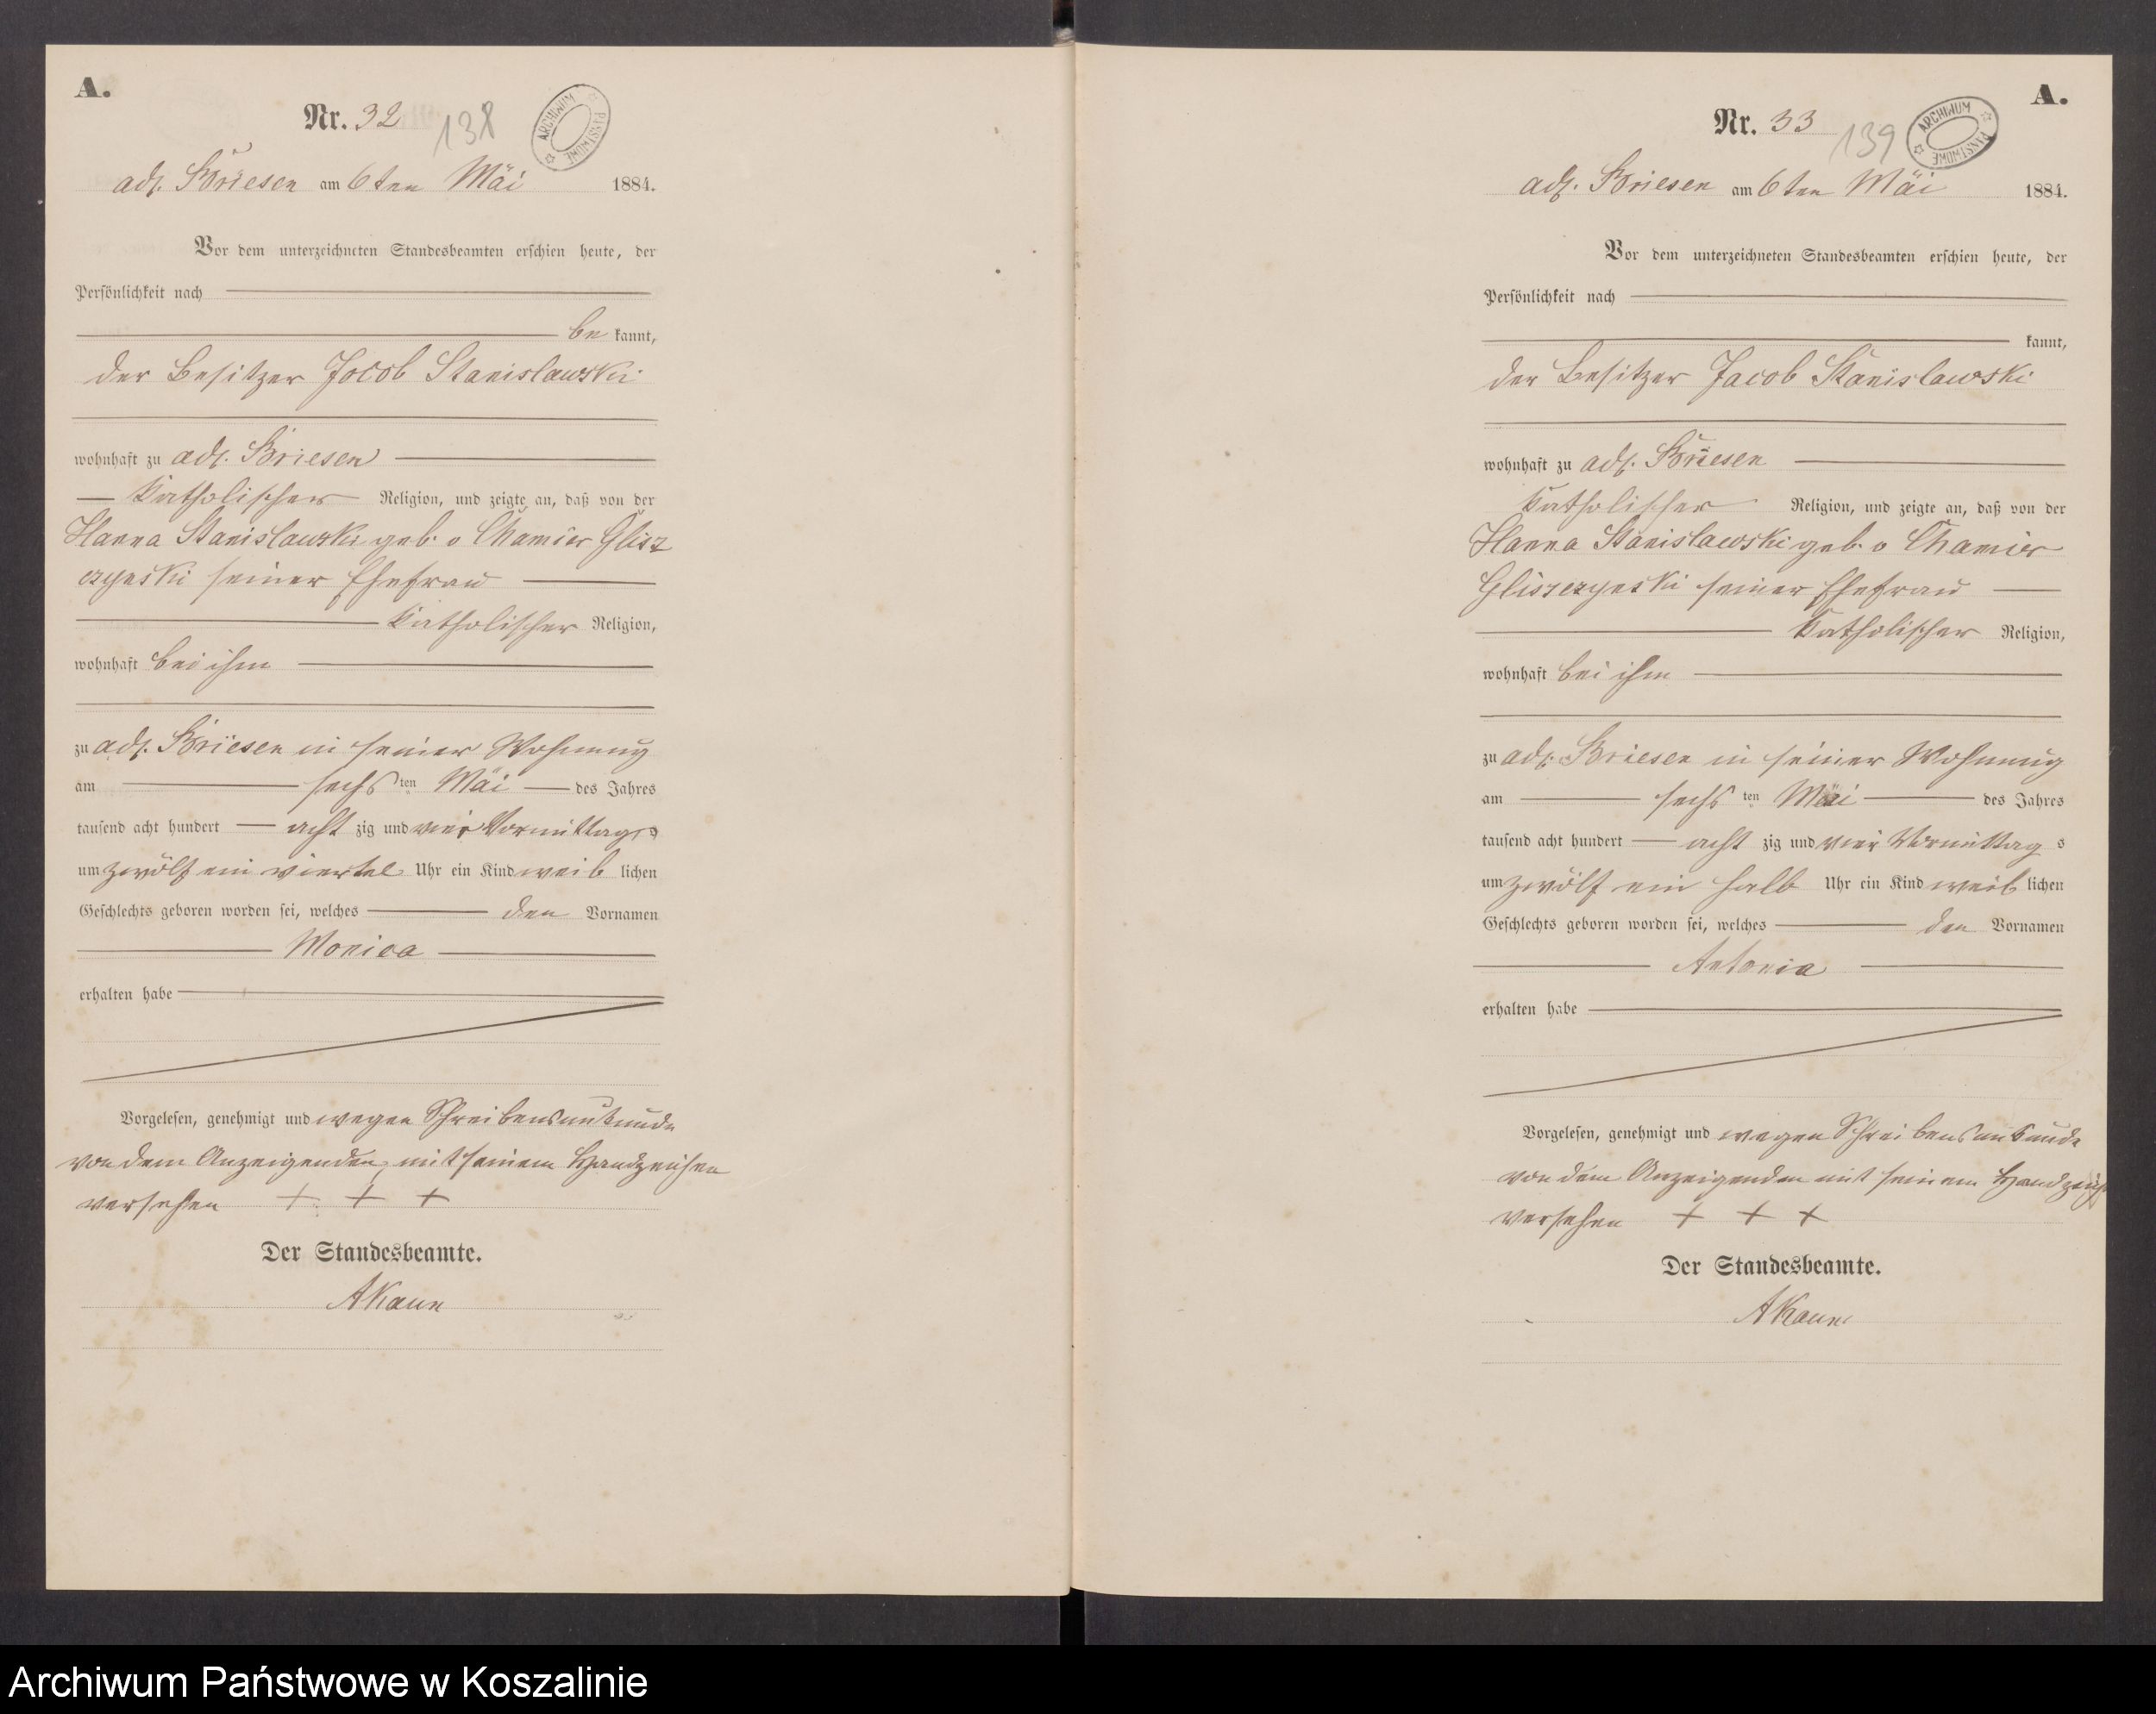 A.
Nr. 32
138
ARCHIWUM PAŃSTWOWE
adl. Briesen am 6ten Mai 1884.
Vor dem unterzeichneten Standesbeamten erschien heute, der
Persönlichkeit nach
be kannt,
der Besitzer Jocob Stanislawski
wohnhaft zu adl. Briesen
Katholischer Religion, und zeigte an, daß von der
Hanna Stanislawski geb. v Chamier Glisz
czynski seiner Ehefrau
Katholischer Religion,
wohnhaft bei ihm
zu adl. Briesen in seiner Wohnung
am sechs ten Mai des Jahres
tausend acht hundert acht zig und vier Vormittags
um zwölf ein viertel Uhr ein Kind weib lichen
Geschlechts geboren worden sei, welches den Vornamen
Monica
erhalten habe
Vorgelesen, genehmigt und wegen Schreibensunkunde
von dem Anzeigenden, mit seinem Handzeichen
versehen + + +
Der Standesbeamte.
AKaun
A.
Nr. 33
139
ARCHIWUM PAŃSTWOWE
adl. Briesen am 6ten Mai 1884.
Vor dem unterzeichneten Standesbeamten erschien heute, der
Persönlichkeit nach
kannt,
der Besitzer Jacob Stanislawski
wohnhaft zu adl. Briesen
Katholischer Religion, und zeigte an, daß von der
Hanna Stanislawski geb. v Chamier
Gliszczynski seiner Ehefrau
Katholischer Religion,
wohnhaft bei ihm
zu adl. Briesen in seiner Wohnung
am sechs ten Mai des Jahres
tausend acht hundert acht zig und vier Vormittag s
um zwölf ein halb Uhr ein Kind weib lichen
Geschlechts geboren worden sei, welches den Vornamen
Antonia
erhalten habe
Vorgelesen, genehmigt und wegen Schreibensunkunde
von dem Anzeigenden mit seinem Handzeich
versehen + + +
Der Standesbeamte.
AKaun
Archiwum Państwowe w Koszalinie